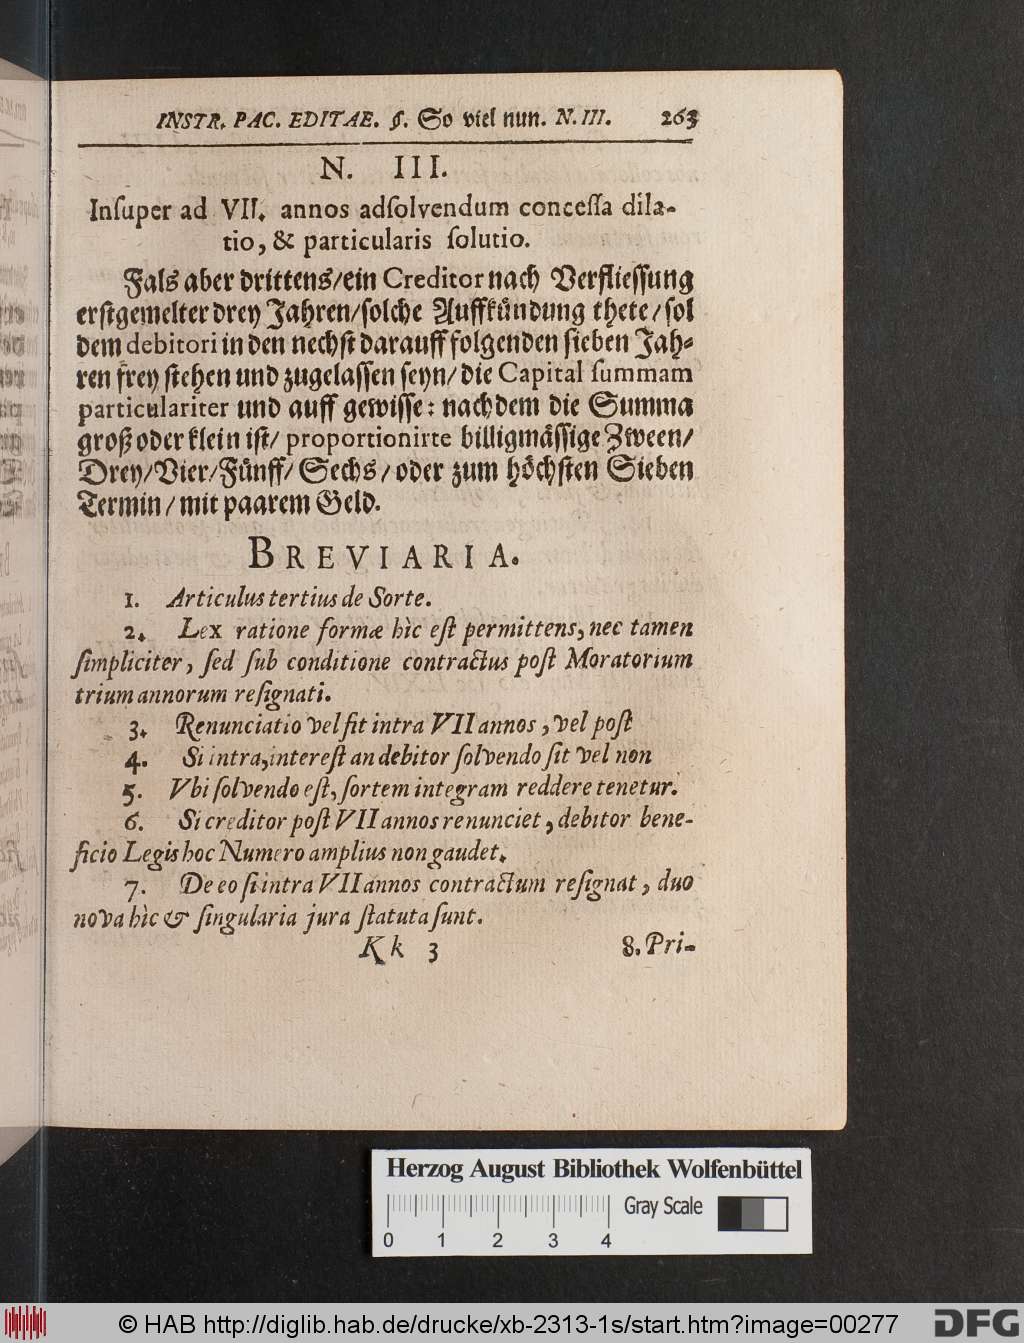 INSTR. PAC. EDITAE. §. So viel nun. N. III. 263
N. III.
Inſuper ad VII. annos adſolvendum conceſſa dila-
tio, & particularis ſolutio.
Fals aber drittens/ein Creditor nach Verflieſſung
erſtgemelter drey Jahren/ſolche Auffkündung thete/ſol
dem debitori in den nechſt darauff folgenden ſieben Jah-
ren frey ſtehen und zugelaſſen ſeyn/die Capital ſummam
particulariter und auff gewiſſe: nachdem die Summa
groß oder klein iſt/proportionirte billigmäſſige Zween/
Drey/Vier/Fünff/Sechs/oder zum höchſten Sieben
Termin/mit paarem Geld.
BREVIARIA.
1. Articulus tertius de Sorte.
2. Lex ratione formæ hìc eſt permittens, nec tamen
ſimpliciter, ſed ſub conditione contractus poſt Moratorium
trium annorum reſignati.
3. Renunciatio vel fit intra VII annos, vel poſt
4. Si intra, intereſt an debitor ſolvendo ſit vel non
5. Vbi ſolvendo eſt, ſortem integram reddere tenetur.
6. Si creditor poſt VII annos renunciet, debitor bene-
ficio Legis hoc Numero amplius non gaudet.
7. De eo ſi intra VII annos contractum reſignat, duo
nova hìc & ſingularia jura ſtatuta ſunt.
Kk 3 8. Pri-
Herzog August Bibliothek Wolfenbüttel
Gray Scale
0 1 2 3 4
© HAB http://diglib.hab.de/drucke/xb-2313-1s/start.htm?image=00277
DFG